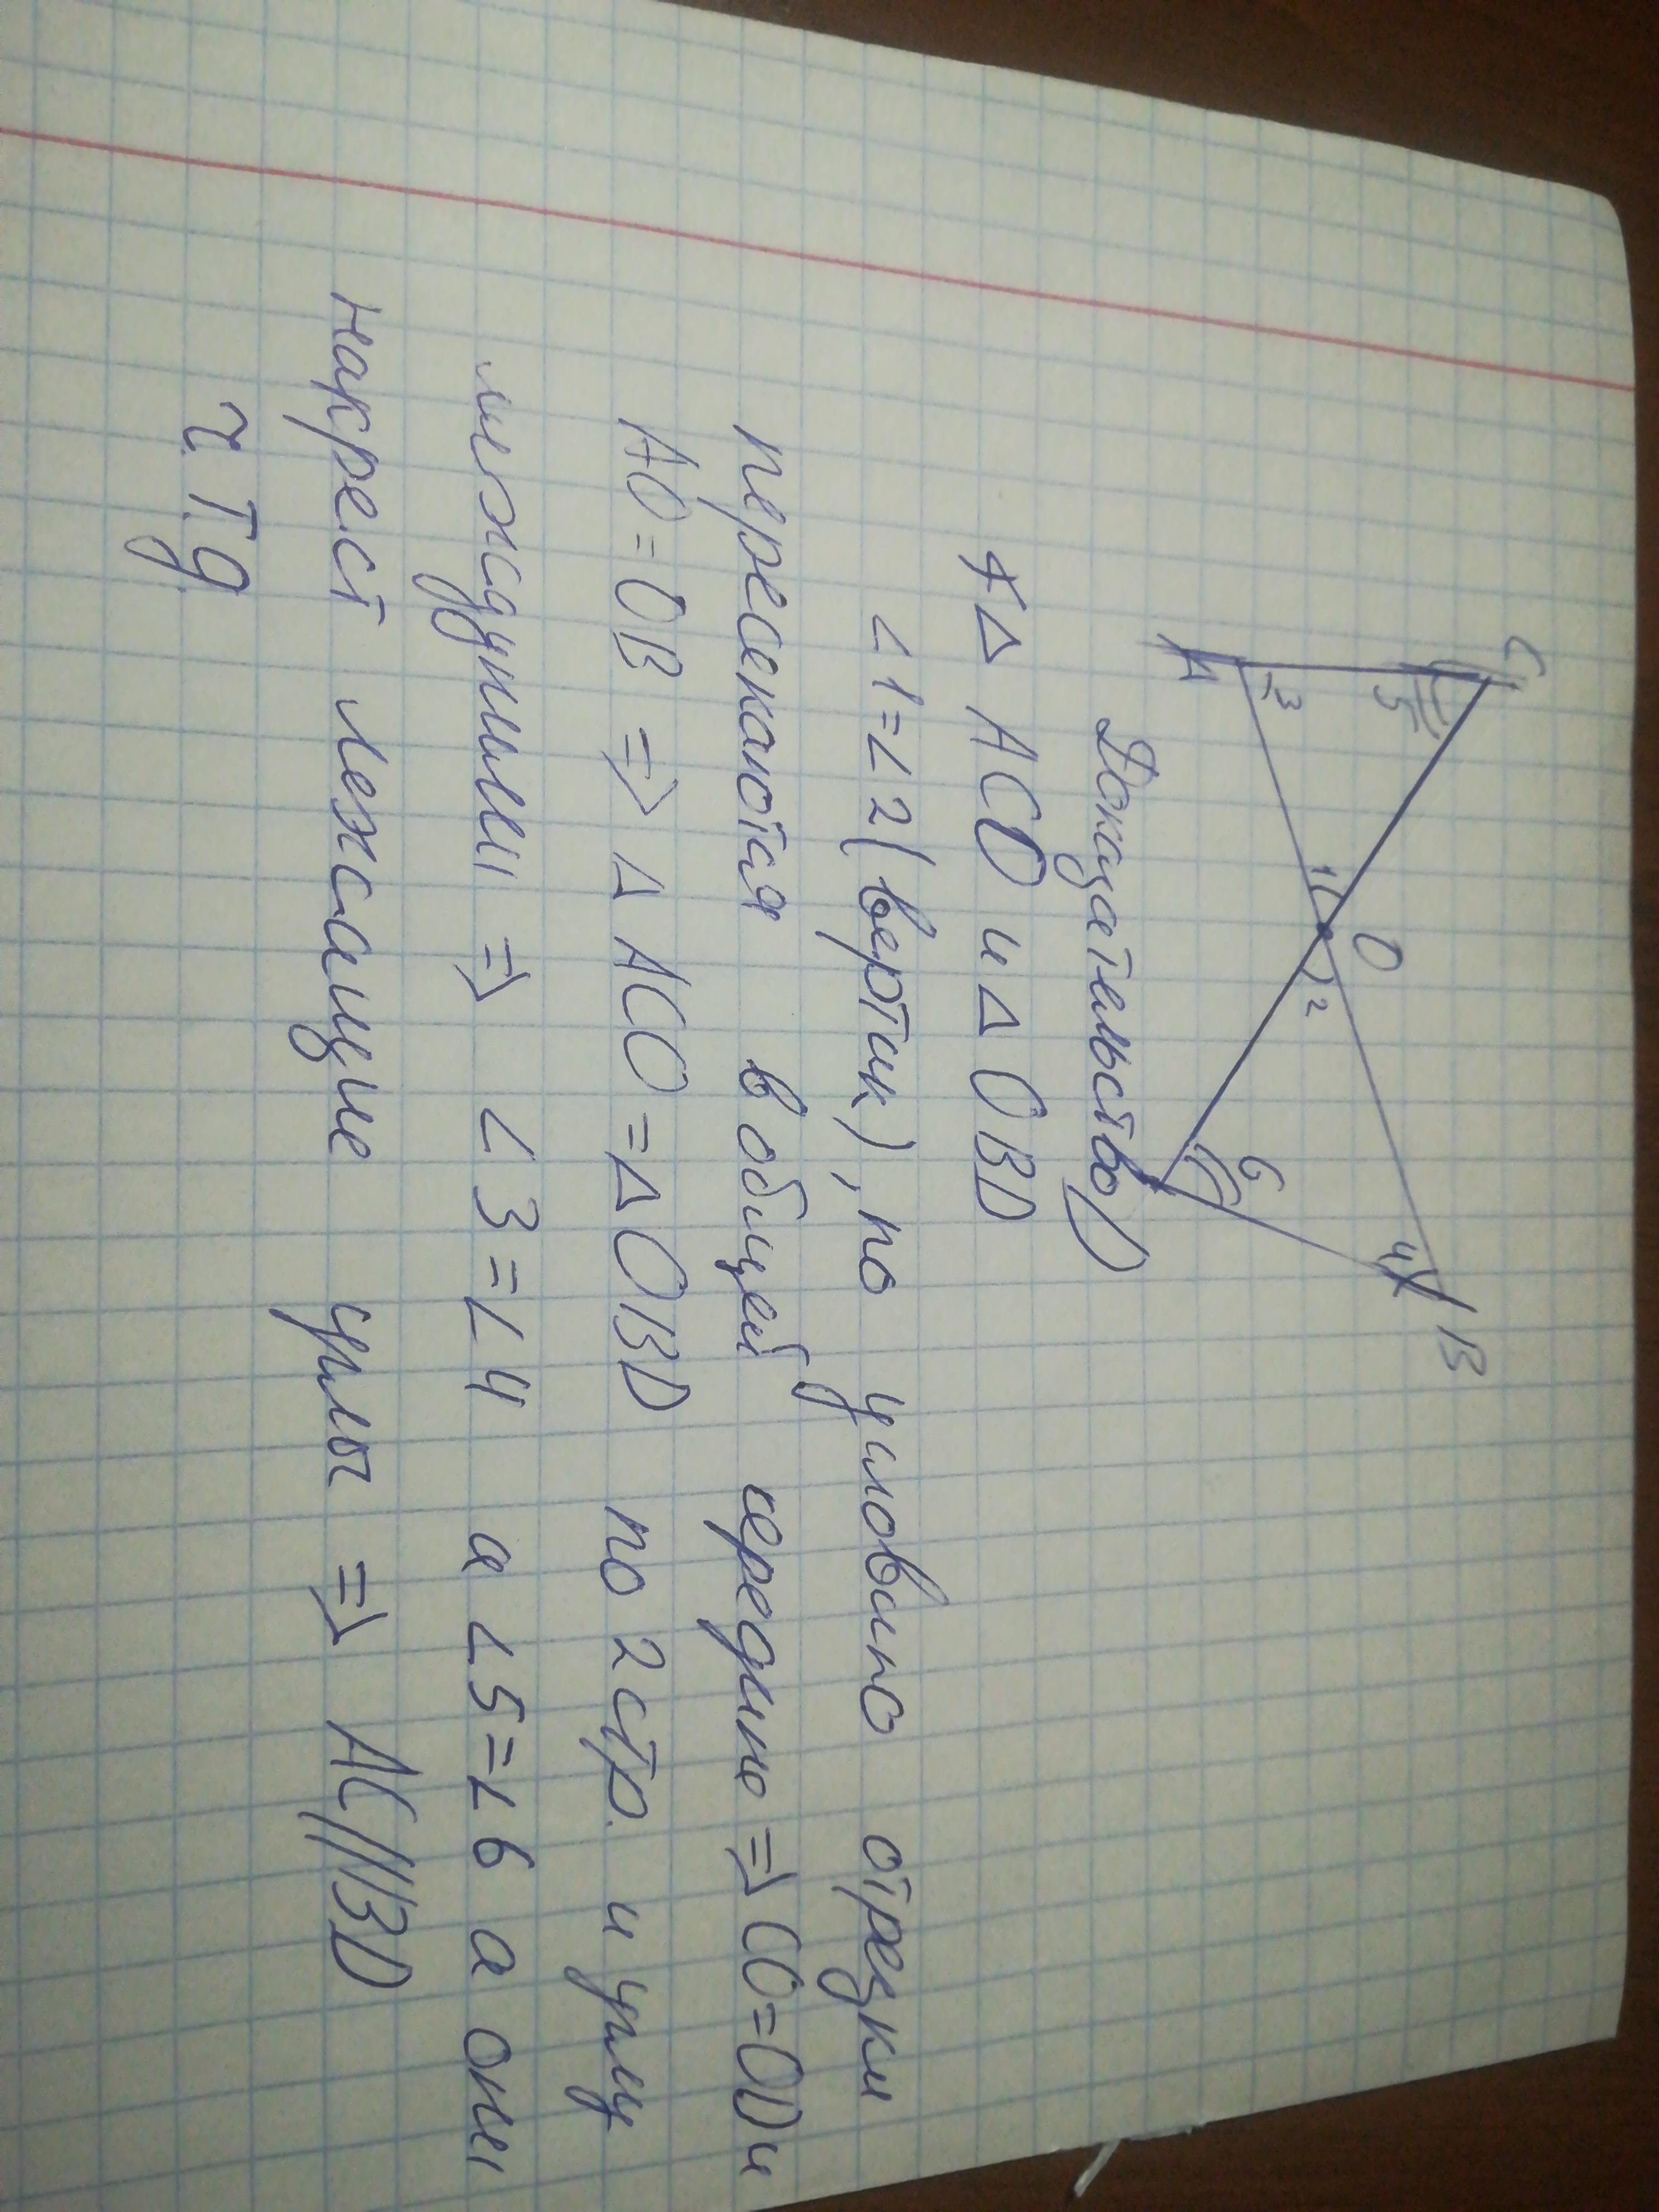 C
O
B
A
5
3
1
2
4
6
Доказательство)
∡∆ ACO и ∆ OBD
∠1=∠2(вертик), по условию отрезки
пересекаются в общей середине => CO=OD и
AO=OB => ∆ ACO=∆OBD по 2 стр. и углу
между ними => ∠3=∠4 а ∠5=∠6 а они
накрест лежащие углы => AC//BD
ч.Т.д.